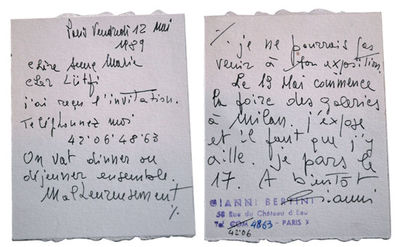 Paris Vendredi 12 Mai
1989
chère Anne Marie
cher Lütfi
j'ai reçu l'invitation.
Téléphonez moi
42'06'48'63
On vat dinner ou
déjeuner ensemble.
Malheureusement
./.
./. je ne pourrais pas
venir à ton exposition.
Le 19 Mai commence
la foire des galeries
à Milan. j'expose
et il faut que j'y
aille. je pars le
17. A bientôt
Gianni
GIANNI BERTINI
58 Rue du Château d'Eau
Tel 4863 - PARIS X
4206